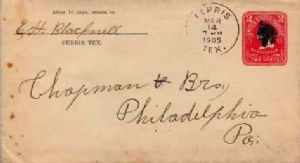 After 10 days, return to
E. H. Blacknell
FERRIS, TEX.
FERRIS
MAR
14
1905
TEX.
2 2
TWO CENTS
Chapman & Bro
Philadelphia
Pa.